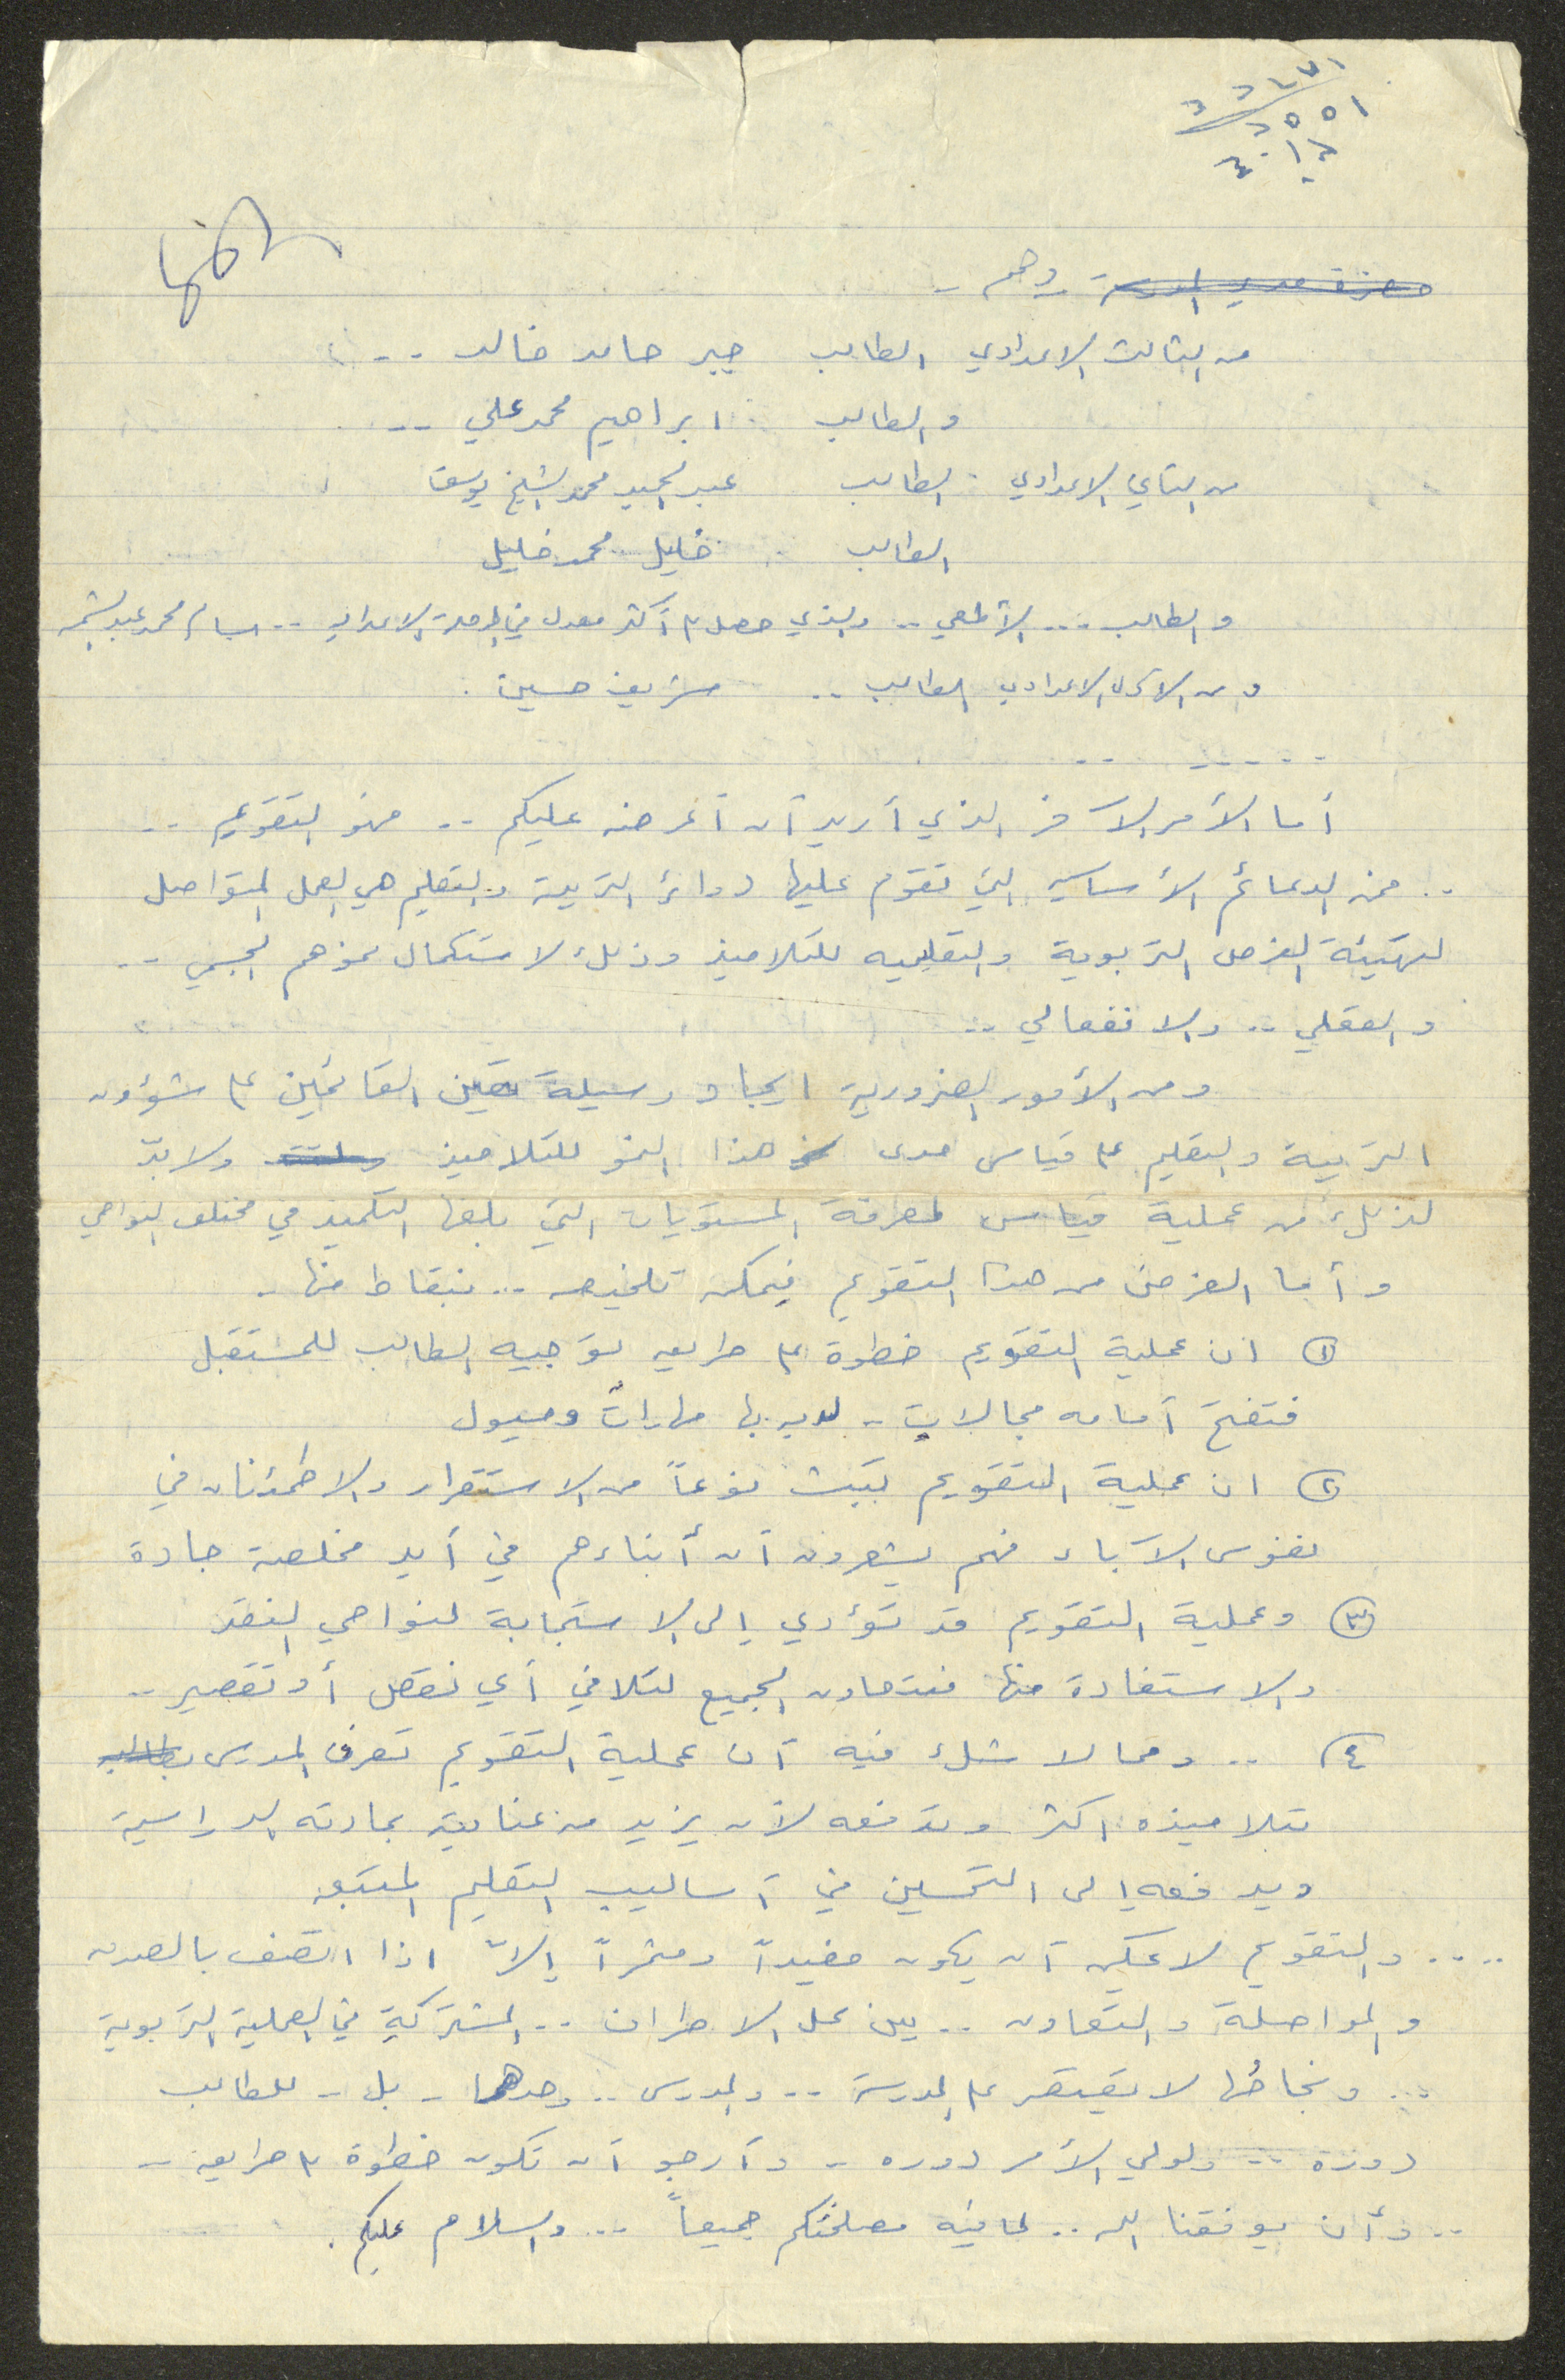 وهم -
من الثالث الاعدادي الطالب جبر حامد خالد ..
والطالب ابراهيم محمد علي ..
من الثاني الاعدادي الطالب عبد المجيد محمد الشيخ يوسف
الطالب خليل محمد خليل
والطالب ... الألمعي .. والذي حصل على أكثر معدل في المرحلة الاعداديه .. بسام محمد
ومن الأول الاعدادي الطالب .. شريف حسين .
أما الأمر الآخر الذي أريد أن أعرضه عليكم .. فهو التقويم ..
.. فمن الدعائم الأساسيه التي تقوم عليها دوائر التربية والتعليم هي العمل المتواصل
لتهيئة الفرص التربوية والتعليميه للتلاميذ وذلك لاستكمال نموهم الجسمي ..
والعقلي .. والانفعالي ..
ومن الأمور الضرورية ايجاد وسيلة تعين القائمين على شؤون
التربية والتعليم على قياس مدى هذا النمو للتلاميذ ولابدّ
لذلك من عملية قياس لمعرفة المستويات التي بلغها التلميذ في مختلف النواحي
وأما الغرض من هذا التقويم فيمكن تلخيصه .. بنقاط منها -
١ ان عملية التقويم خطوة على طريق توجيه الطالب للمستقبل
فتفتح أمامه مجالات - لديه بها مهارات وميول
٢ ان عملية التقويم تبث نوعاً من الاستقرار والاطمئنان في
نفوس الآباء فهم يشعرون أن أبناءهم في أيد مخلصة جادة
٣ وعملية التقويم قد تؤدي إلى الاستجابة لنواحي النقد
والاستفادة منها فيتعاون الجميع لتلافي أي نقص أو تقصير ..
٤ .. ومما لا شك فيه أن عملية التقويم تعرف المدرس
بتلاميذه اكثر وتدفعه لأن يزيد من عنايته بمادته الدراسية
ويدفعه إلى التحسين في أساليب التعليم المتبعه
.... والتقويم لا يمكن أن يكون مفيداً ومثمراً إلاّ اذا اتصف بالصدق
والمواصلة والتعاون .. بين كل الاطراف .. المشتركة في العملية التربوية
... ونجاحُها لا يقتصر على المدرسة .. والمدرس .. وحدهما - بل - للطالب
دوره .. ولولي الأمر دوره - وأرجو أن تكون خطوة على طريق -
.. وأن يوفقنا الله .. لما فيه مصلحتكم جميعاً ... والسلام عليكم .